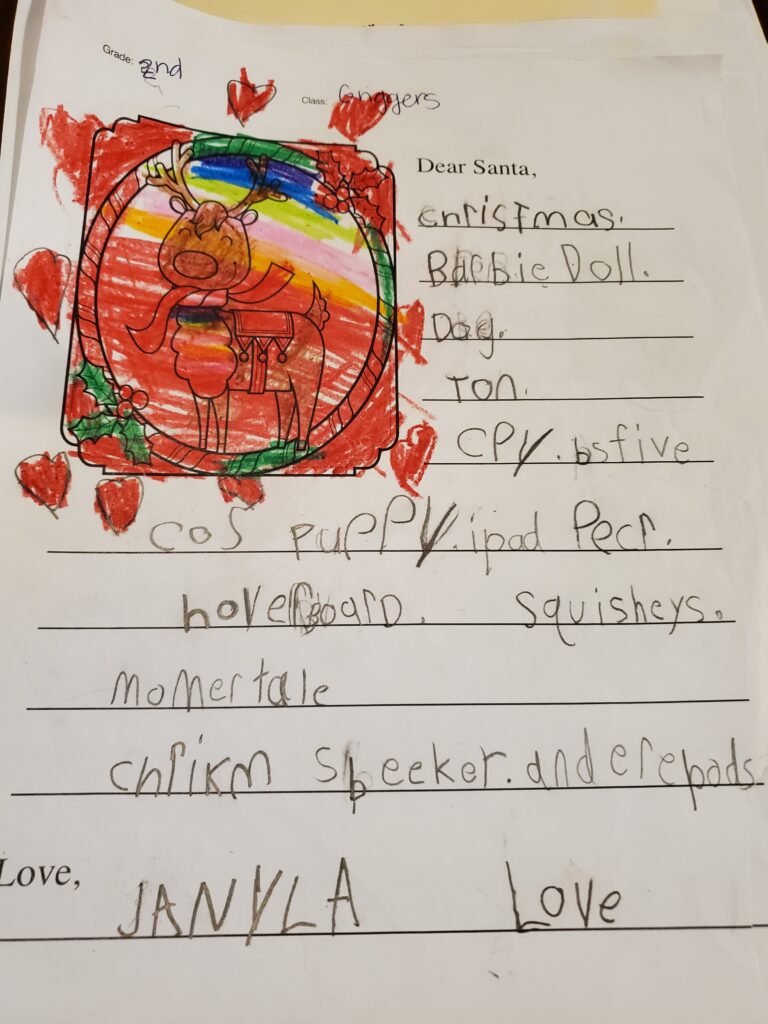 Grade: 2nd
Class: Griggers
Dear Santa,
christmas.
Barbie Doll.
Dog.
Ton.
CPY. bsfive
cos puppy. ipad Pecr.
hoverboard. squisheys.
momertale
chrikm speeker. and erepods
Love,
JANYLA Love